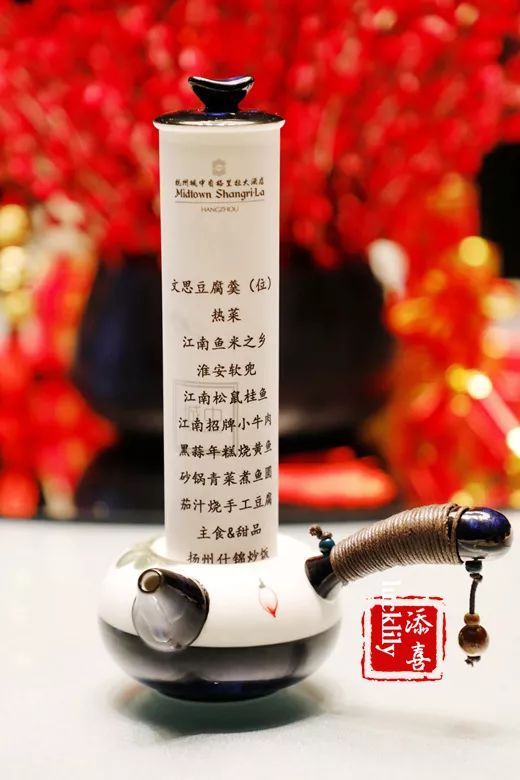 杭州城中香格里拉大酒店
Midtown Shangri-La
HANGZHOU
文思豆腐羹（位）
热菜
江南鱼米之乡
淮安软兜
江南松鼠桂鱼
江南招牌小牛肉
黑蒜年糕烧黄鱼
砂锅青菜煮鱼圆
茄汁烧手工豆腐
主食&甜品
扬州什锦炒饭
lucklily
添喜